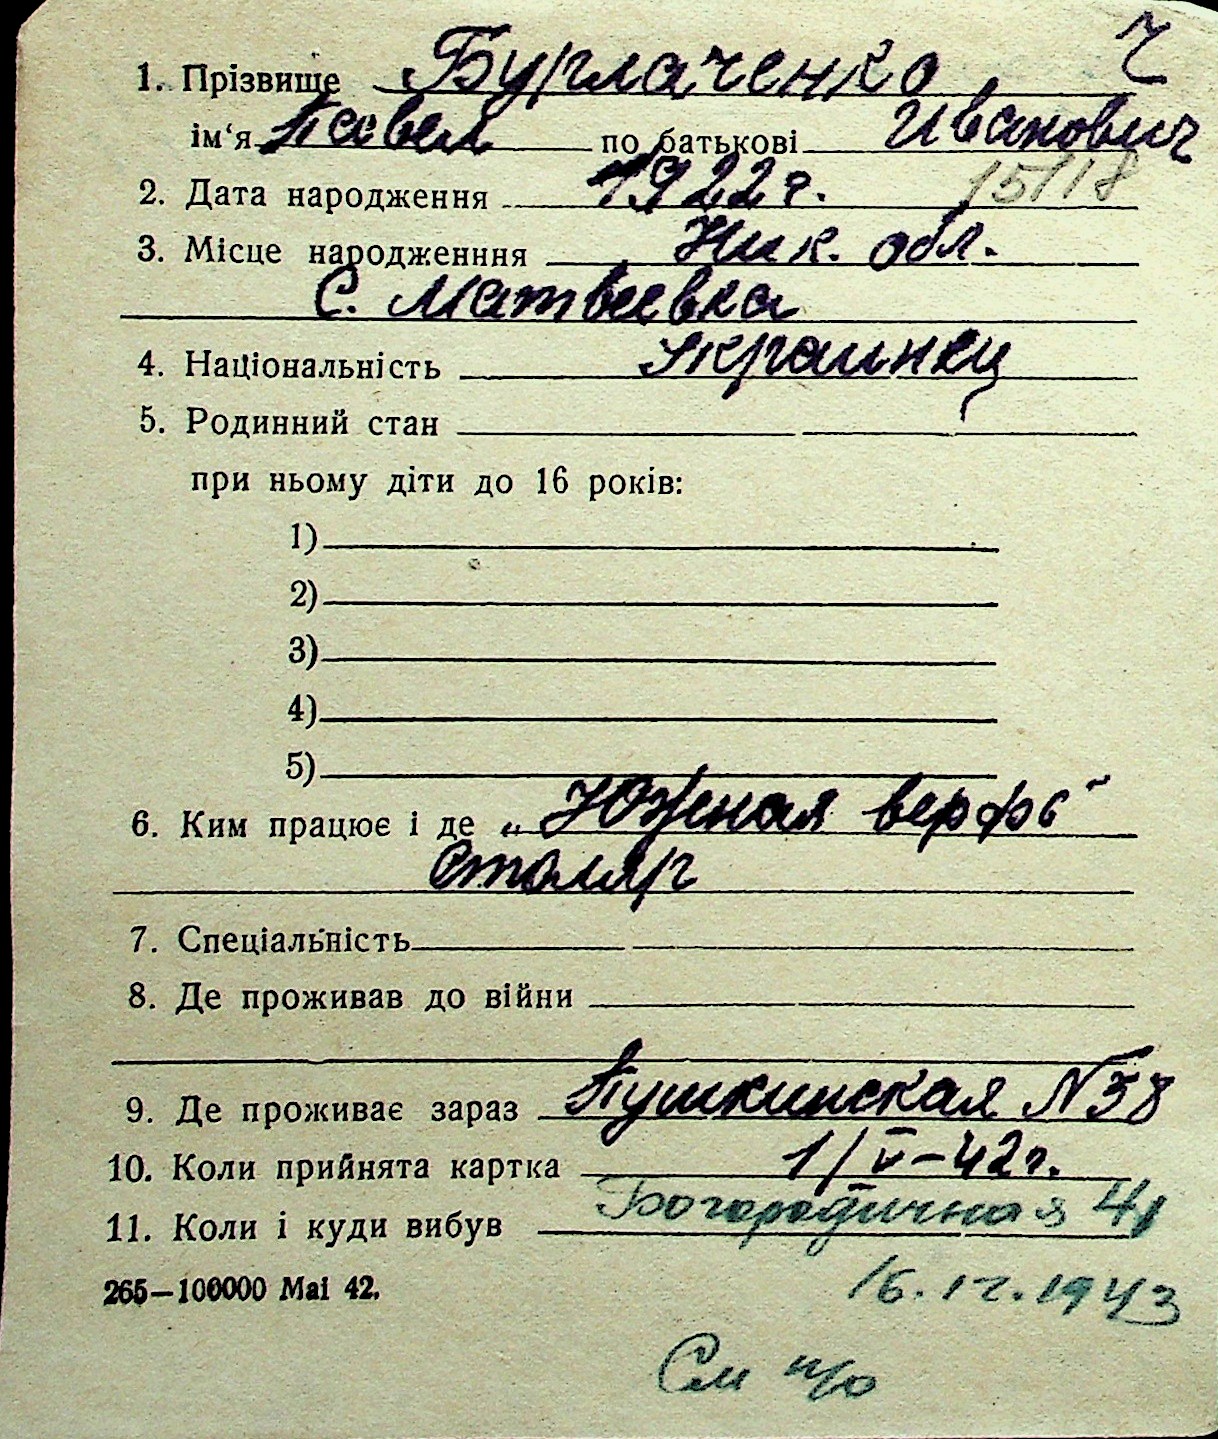 Ч
1. Прізвище Бурлаченко
ім‘я Павел по батькові Иванович
2. Дата народження 1922 г. 15118
3. Місце народженння Ник. обл.
С. Матвеевка
4. Національність Украинец
5. Родинний стан
при ньому діти до 16 років:
1)
2)
3)
4)
5)
6. Ким працює і де „Южная верфь“
Столяр
7. Спеціальність
8. Де проживав до війни
9. Де проживає зараз Пушкинская N 38
10. Коли прийнята картка 1/V–42 г.
11. Коли і куди вибув Богородичная 41
265—100000 Mai 42.
16.12.1943
См н/о